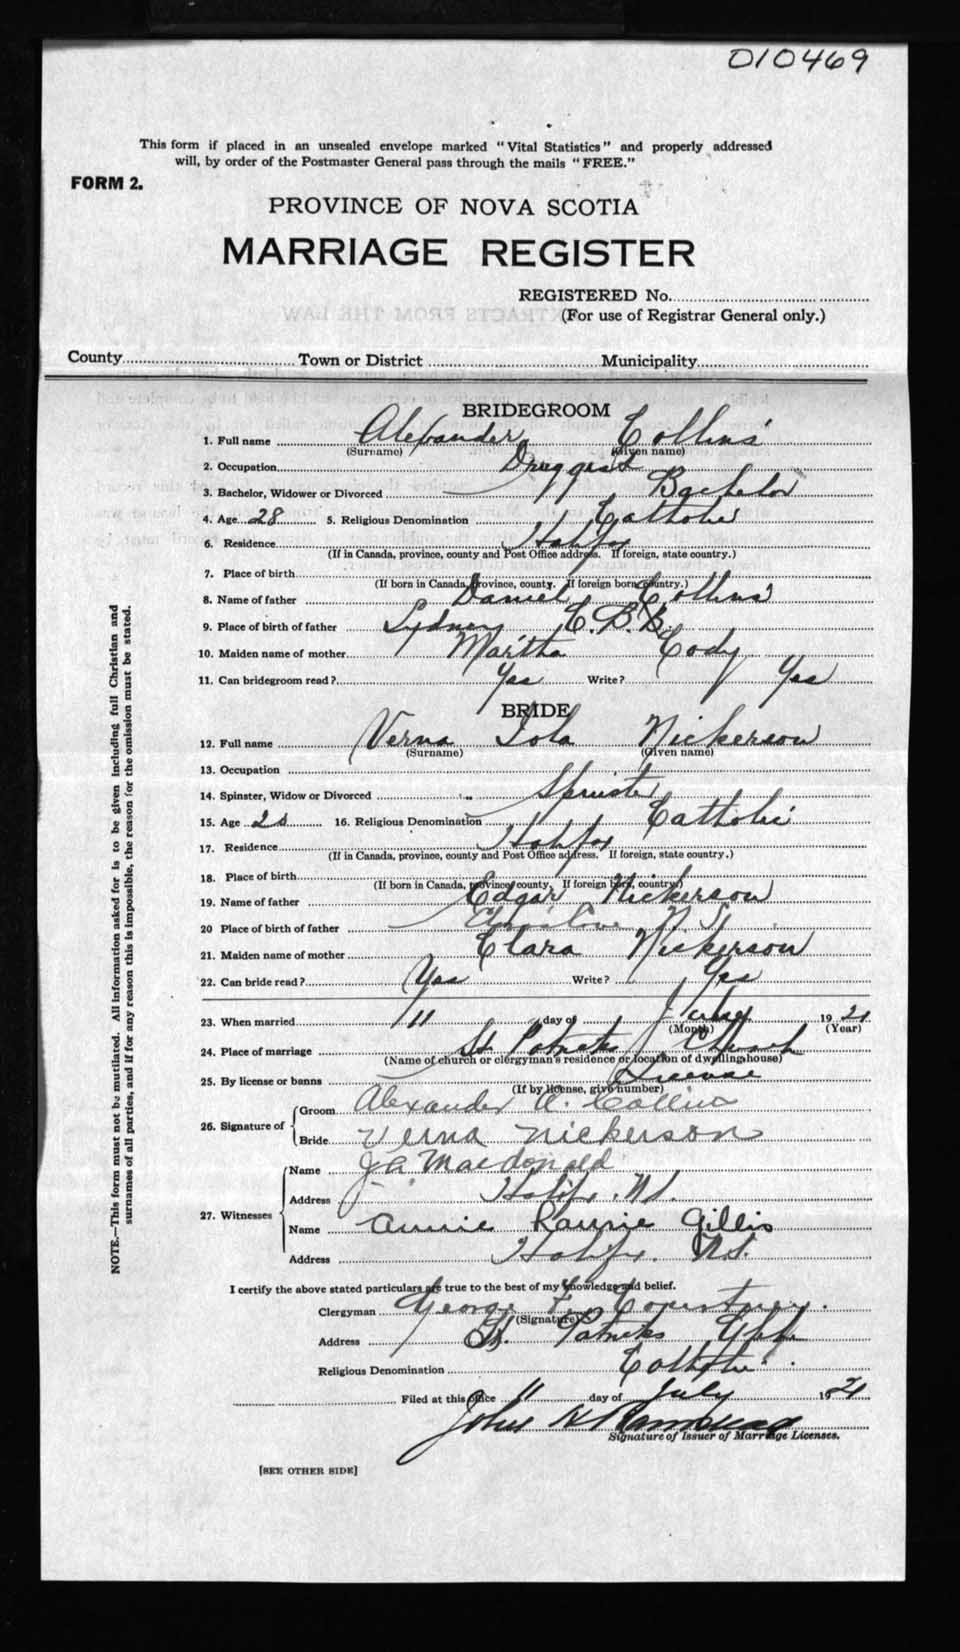 010469
This form if placed in an unsealed envelope marked "Vital Statistics" and properly addressed
will, by order of the Postmaster General pass through the mails "FREE."
FORM 2.
PROVINCE OF NOVA SCOTIA
MARRIAGE REGISTER
REGISTERED No.
(For use of Registrar General only.)
County Town or District Municipality
BRIDEGROOM
1. Full name Alexander Collins
(Surname) (Given name)
2. Occupation Druggist
3. Bachelor, Widower or Divorced Bachelor
4. Age 28 5. Religious Denomination Catholic
6. Residence Halifax
(If in Canada, province, county and Post Office address. If foreign, state country.)
7. Place of birth
(If born in Canada, province, county. If foreign born, country.)
8. Name of father Daniel Collins
9. Place of birth of father Sydney C.B.
10. Maiden name of mother Martha Cody
11. Can bridegroom read? Yes Write? Yes
BRIDE
12. Full name Verna Iola Nickerson
(Surname) (Given name)
13. Occupation
14. Spinster, Widow or Divorced Spinster
15. Age 16. Religious Denomination Catholic
17. Residence Halifax
(If in Canada, province, county and Post Office address. If foreign, state country.)
18. Place of birth
(If born in Canada, province county, If foreign born, country.)
19. Name of father Edgar Nickerson
20 Place of birth of father Cove N S
21. Maiden name of mother Clara Nickerson
22. Can bride read? Yes Write? Yes
23. When married 11 day of July 1921
(Month) (Year)
24. Place of marriage St Patricks Church
(Name of church or clergyman's residence or location of dwelling house)
25. By license or banns License
(If by license, give number)
26. Signature of Groom Alexander A. Collins
Bride Verna Nickerson
27. Witnesses Name J A Macdonald
Address Halifax, N.S.
Name Annie Laurie Gillis
Address Halifax. N.S.
I certify the above stated particulars are true to the best of my knowledge and belief.
Clergyman George Courtney.
(Signature)
Address St. Patricks Glebe
Religious Denomination Catholic
Filed at this office 11 day of July 1921
John
Signature of Issuer of Marriage Licenses.
[SEE OTHER SIDE]
NOTE.—This form must not be mutilated. All information asked for is to be given including full Christian and
surnames of all parties, and if for any reason this is impossible, the reason for the omission must be stated.